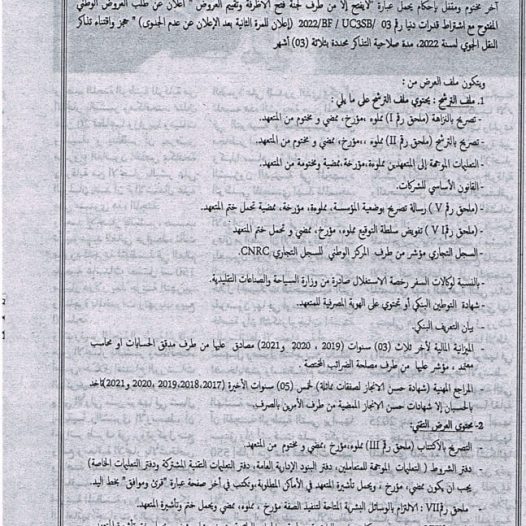 آخر مختوم ومقفل بإحكام يحمل عبارة "لايفتح إلا من طرف لجنة فتح الأظرفة وتقييم العروض " اعلان عن طلب العروض الوطني
المفتوح مع إشتراط قدرات دنيا رقم 03 /2022/BF / UC3SB (إعلان للمرة الثانية بعد الإعلان عن عدم الجدوى) " حجز واقتناء تذاكر
النقل الجوي لسنة 2022، مدة صلاحية التذاكر محددة بثلاثة (03) أشهر
ويتكون ملف العرض من :
1. ملف الترشح : يحتوي ملف الترشح على ما يلي :
- تصريح بالنزاهة (ملحق رقم I) مملوء ،مؤرخ، ممضي و مختوم من المتعهد.
- تصريح بالترشح (ملحق رقم II) مملوء ،مؤرخ، ممضي و مختوم من المتعهد.
- التعليمات الموجهة إلى المتعهدين مملوءة،مؤرخة،ممضية ومختومة من المتعهد.
- القانون الأساسي للشركات.
- (ملحق رقم V ) رسالة تصريح بوضعية المؤسسة، مملوءة، مؤرخة، ممضية تحمل ختم المتعهد.
- (ملحق رقم V I) تفويض سلطة التوقيع مملوء، مؤرخ، ممضي و تحمل ختم المتعهد
- السجل التجاري مؤشر من طرف المركز الوطني للسجل التجاري CNRC.
- بالنسبة لوكالات السفر رخصة الاستغلال صادرة من وزارة السياحة والصناعات التقليدية.
- شهادة التوطين البنكي أو تحتوي على الهوية المصرفية للمتعهد.
- بيان التعريف البنكي.
- الميزانية المالية لآخر ثلاث (03) سنوات (2019 ، 2020 و2021) مصادق عليها من طرف مدقق الحسابات او محاسب
معتمد ، مؤشر عليها من طرف مصلحة الضرائب المختصة
- المراجع المهنية (شهادة حسن الانجاز لصفقات مماثلة) لخمس (05) سنوات الأخيرة (2017،2018،2019، 2020 و2021)تأخذ
بالحسبان إلا شهادات حسن الانجاز الممضية من طرف الآمرين بالصرف.
2- محتوى العرض التقني:
- التصريح بالاكتتاب (ملحق رقم III) مملوء،مؤرخ ،ممضي و مختوم من المتعهد.
- دفتر الشروط ( التعليمات الموجهة للمتعاملين، دفتر البنود الإدارية العامة، دفتر التعليمات التقنية المشتركة ودفتر التعليمات الخاصة)
يجب ان يكون ممضي، مؤرخ ، ويحمل تأشيرة المتعهد في الأماكن المطلوبة،وتكتب في آخر صفحة عبارة "قرئ ووافق" بخط اليد.
- ملحق رقمVII : الالتزام بالوسائل البشرية المتاحة لتنفيذ الصفة مؤرخ ، مملوء، ممضي ويحمل ختم وتأشيرة المتعهد.